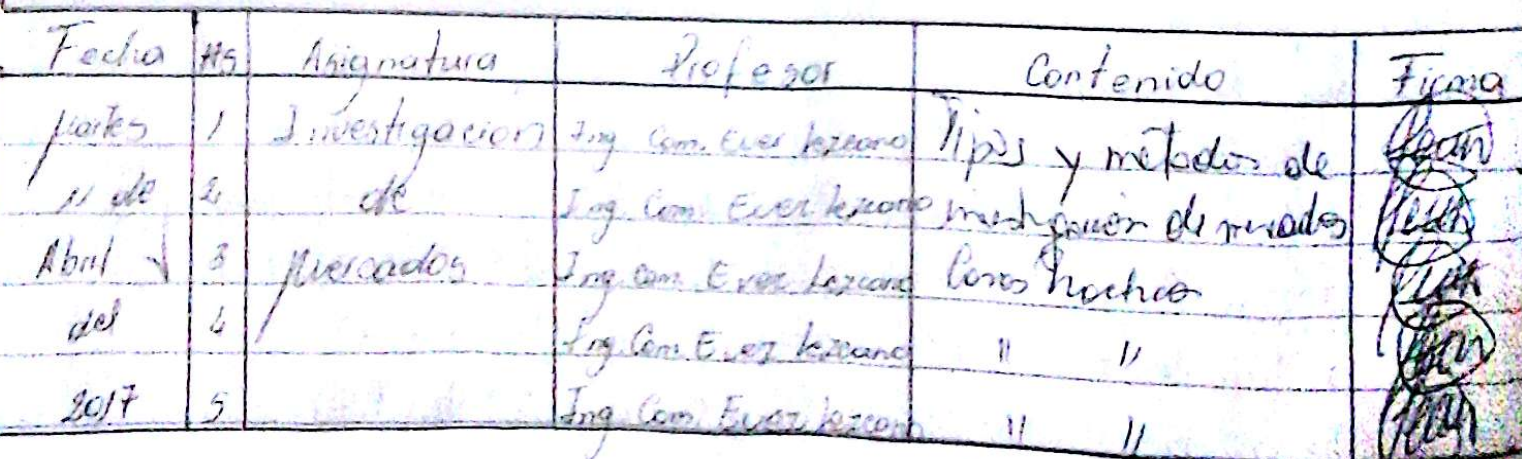 Fecha Hs Asignatura Profesor Contenido Firma
Martes 1 Investigacion Ing Com. Ever Lezcano Tipos y métodos de
11 de 2 de Ing. Com. Ever Lezcano investigación de mercados
Abril 3 Mercados Ing. Com. Ever Lezcano Casos
del 4 Ing. Com. Ever Lezcano " "
2017 5 Ing. Com. Ever Lezcano " "